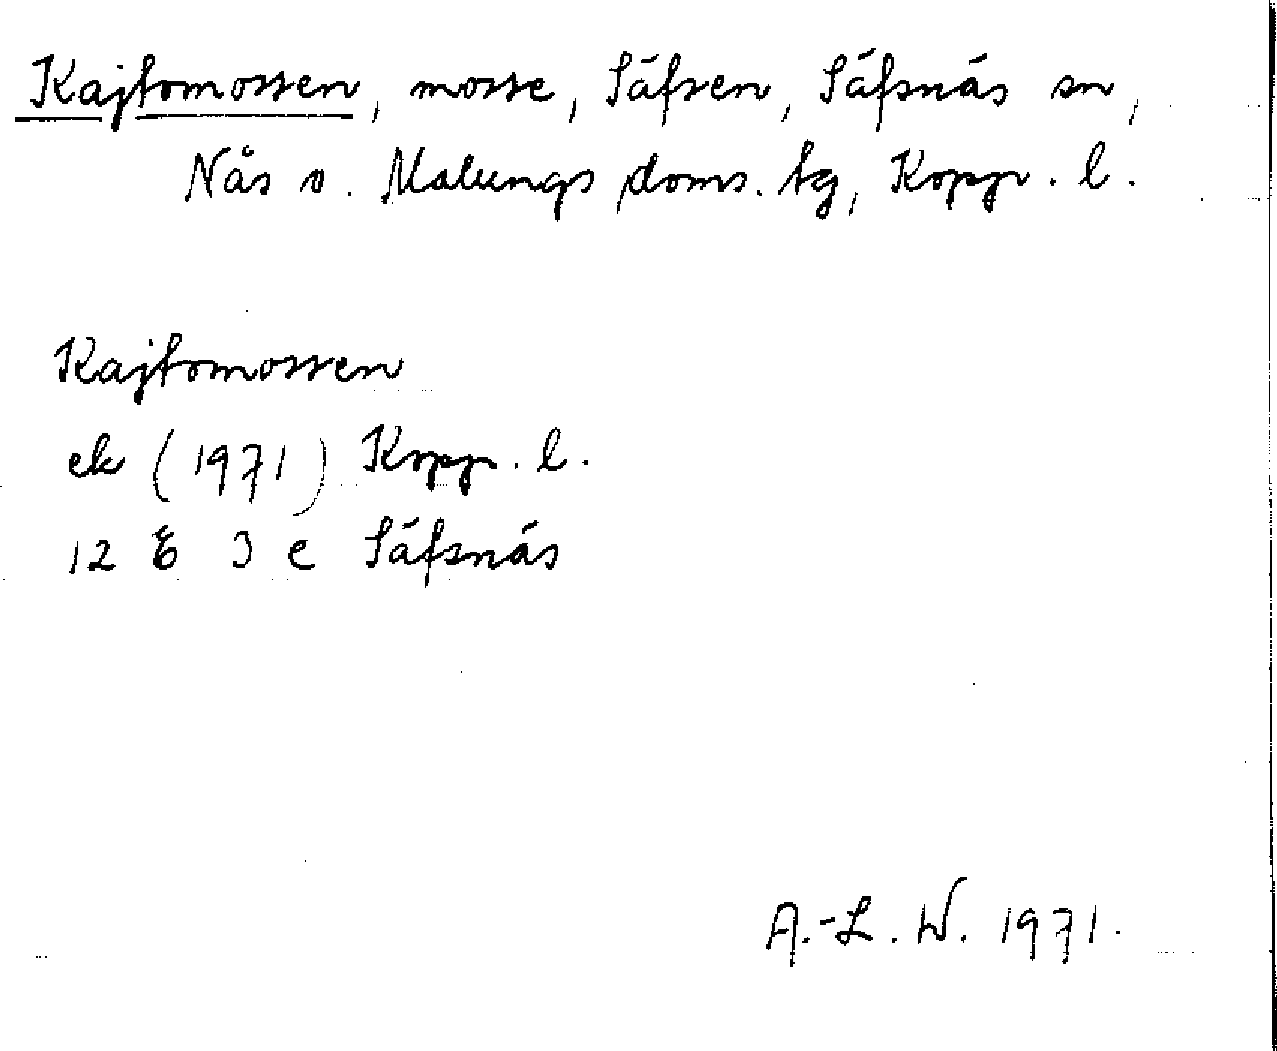 Kajtomossen, mosse, Säfsen, Säfsnäs sn,
Nås o. Malungs doms. tg, Kopp. l.
Kajtomossen
ek (1971) Kopp. l.
12 E 3 e Säfsnäs
A.-L. W. 1971.